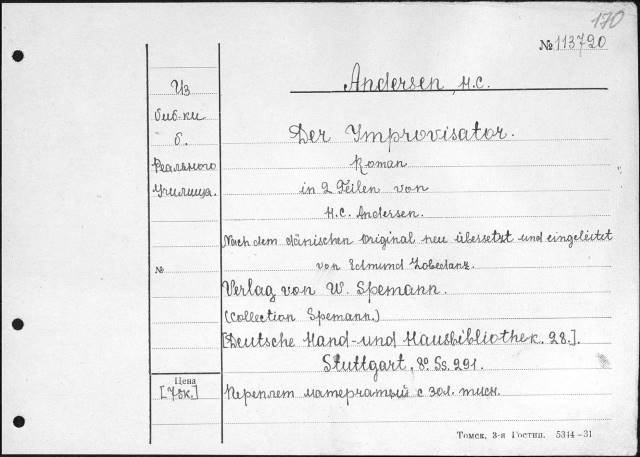 170
№ 113720
Andersen, H.C.
Из
биб-ки
б.
Реального
Училища.
№
Der Improvisator.
Roman
in 2 Teilen von
H.C. Andersen.
Nach dem dänischen Original neu übersetzt und eingeleitet
von Edmund Lobedanz.
Verlag von W. Spemann.
(Collection Spemann.)
[Deutsche Hand- und Hausbibliothek. 28.].
Stuttgart. 8° Ss. 291.
Цена
[75к.]
Переплет матерчатый с зол. тисн.
Томск, 3-я Гостип. 5344-31